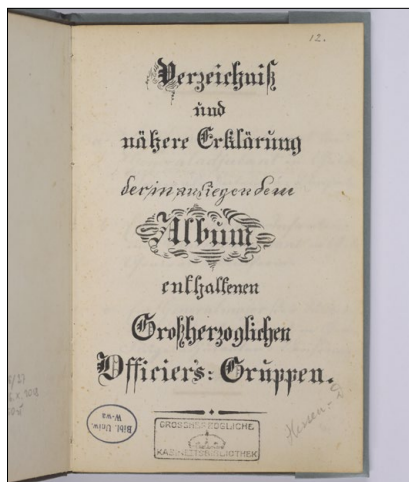 12.
Verzeichniß
und
nähere Erklärung
der in anliegendem
Album
enthaltenen
Großherzoglichen
Officiers: Gruppen.
Bibl. Uniw.
W-wa
GROSSHERZOGLICHE
KABINETSBIBLIOTHEK
Hessen-